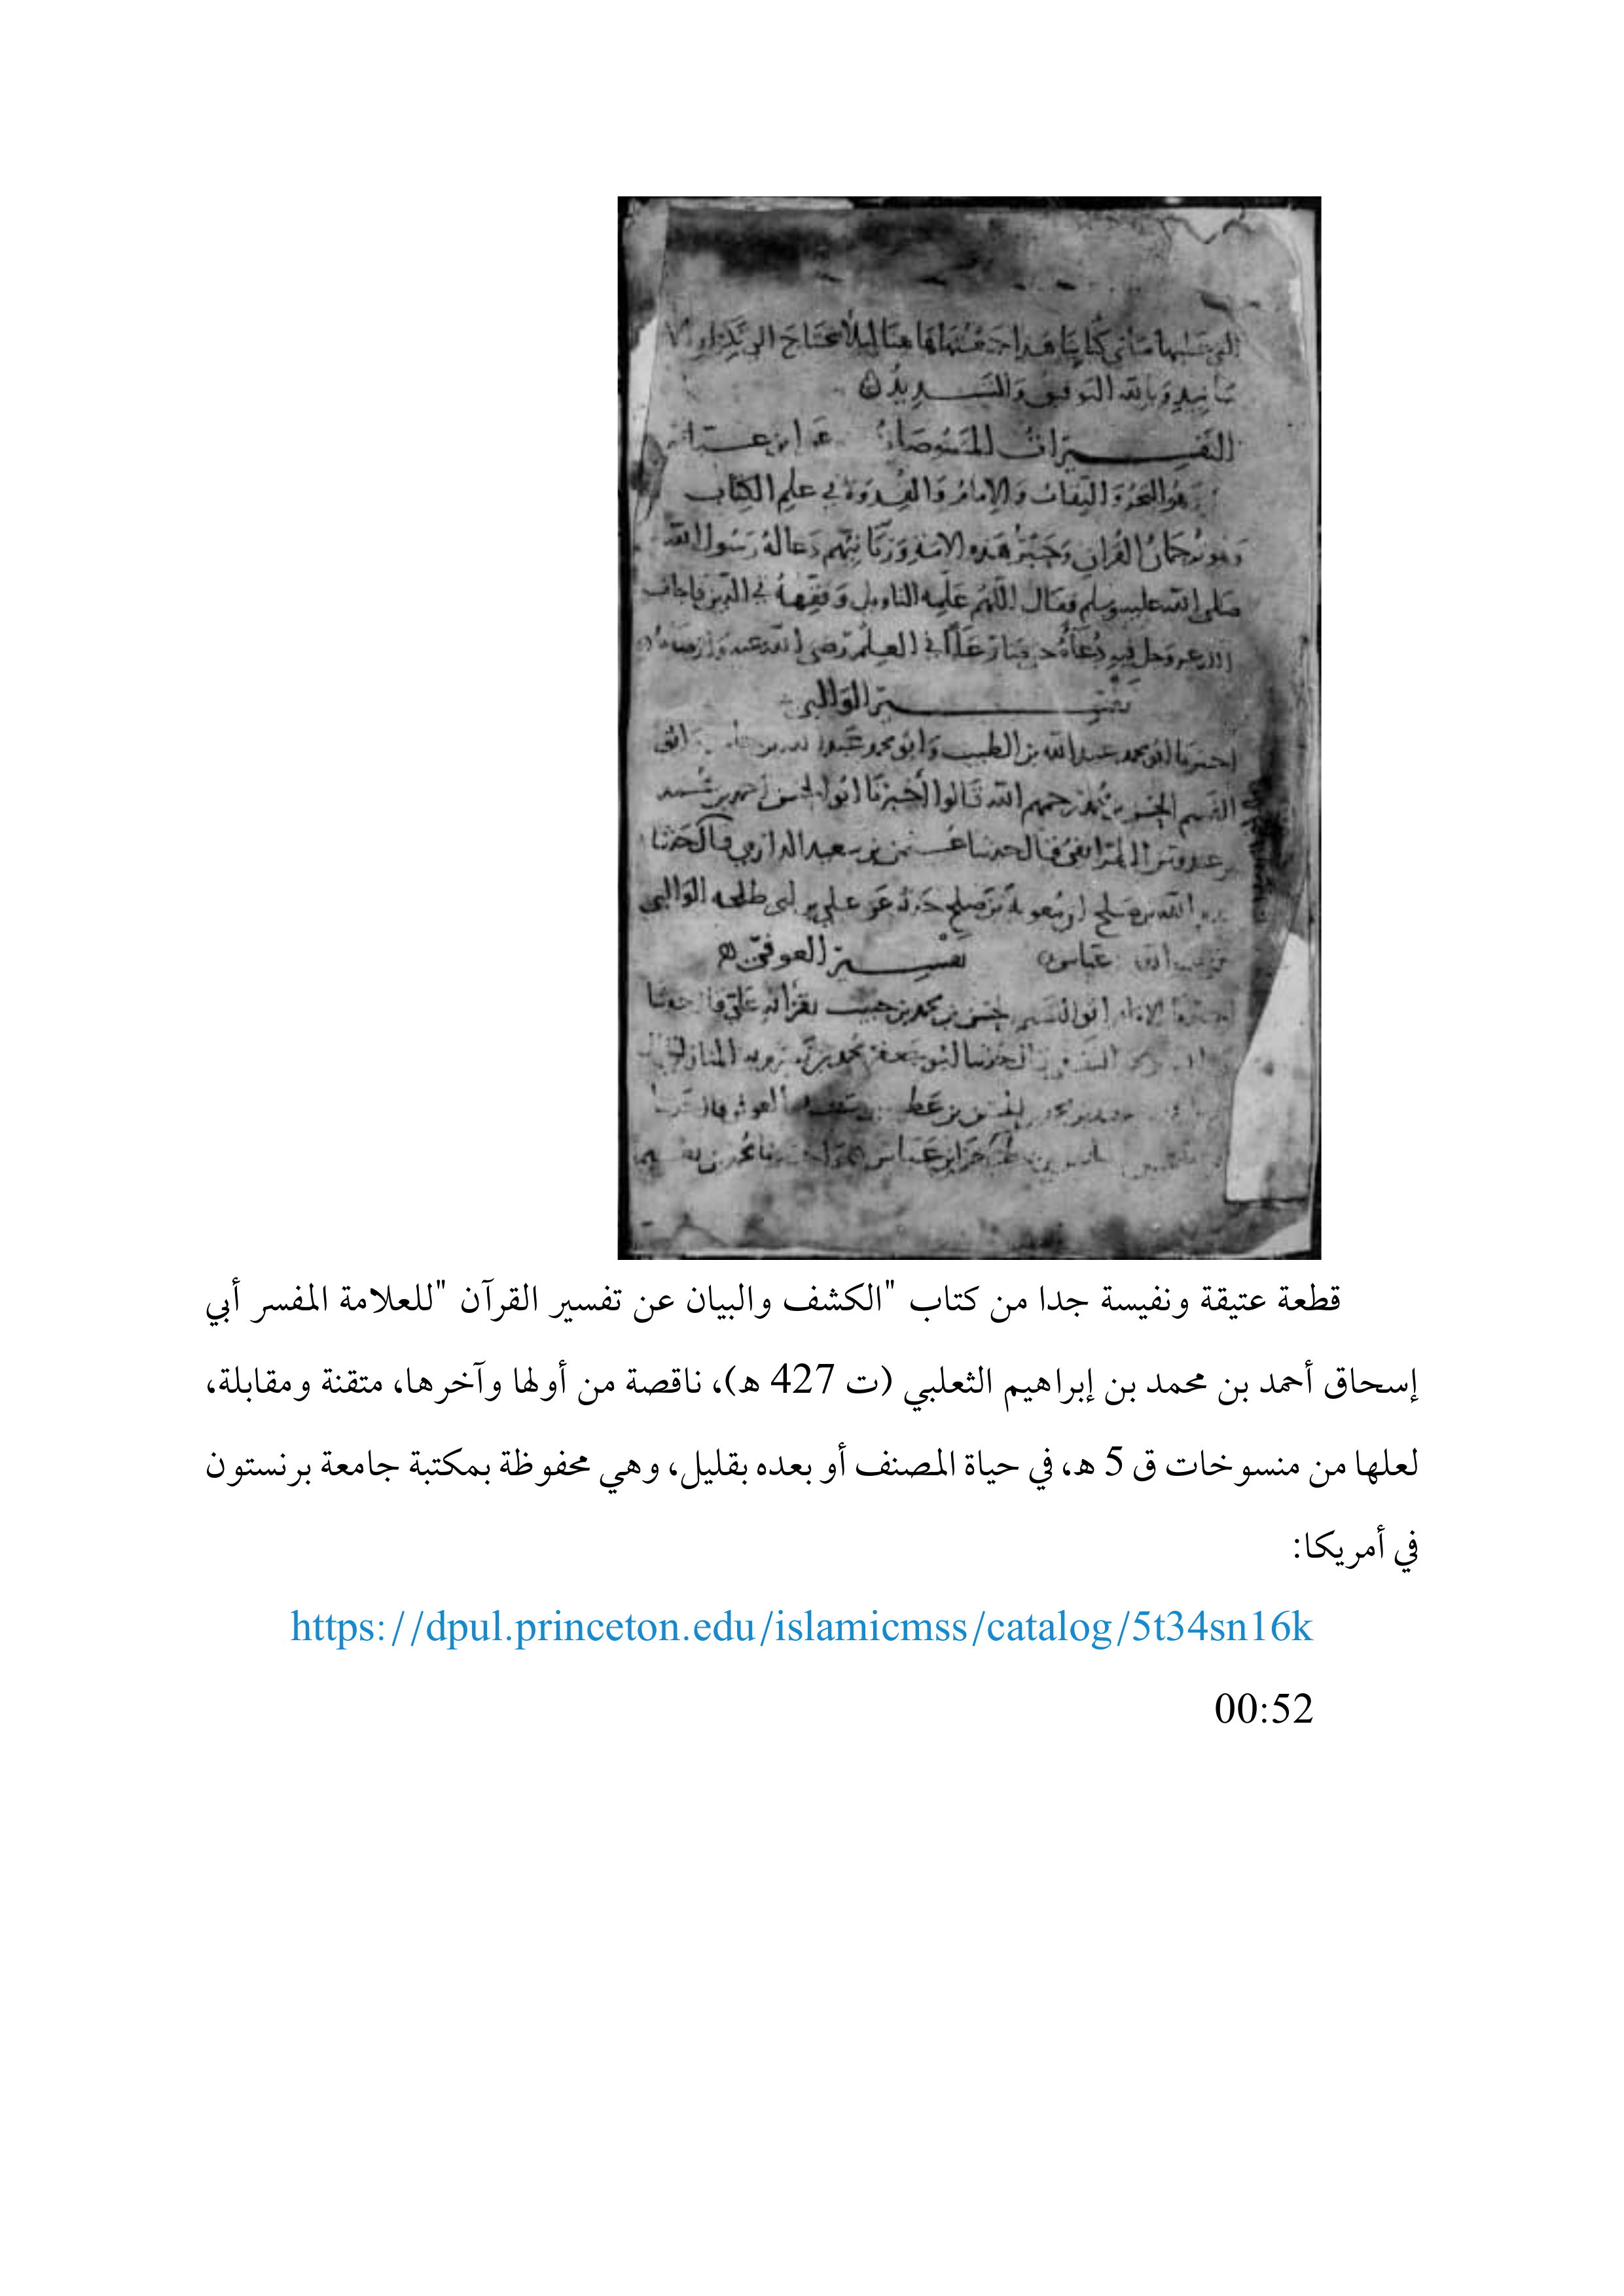 التي عليها مباني كتابنا هذا جمعتها هاهنا ليلا نحتاج الى تكرار الا
سانيد وبالله التوفيق والتسديد
التفسيرات المنصوصات عن ابن عباس
وهو البحر والامام والقدوة في علم الكتاب
وهو ترجمان القران وحبر هذه الامة وربانيهم دعا له رسول الله
صلى الله عليه وسلم فقال اللهم علمه التاويل وفقهه في الدين فاجاب
الله عز وجل فيه دعاه حتى صار علما في العلم رضي الله عنه وارضاه
تفسير الوالبي
اخبرنا ابو محمد عبد الله بن الطيب وابو محمد عبد الله بن وابو
القسم الحسن بن محمد رحمهم الله قالوا أخبرنا ابو الحسن احمد بن محمد
بن عبدوس الطرايفي قال حدثنا عثمن بن سعيد الدارمي قال حدثنا
عبد الله بن صلح ان معوية بن صلح حدثه عن علي بن ابي طلحه الوالبي
عباس تفسير العوفي
اخبرنا الامام ابو القسم الحسن بن محمد بن حبيب بقراته علي قال حدثنا
حدثنا ابو جعفر محمد بن
الحسن بن عطية بن سعد العوفي قال
عن ابن عباس
قطعة عتيقة ونفيسة جدا من كتاب "الكشف والبيان عن تفسير القرآن "للعلامة المفسر أبي
إسحاق أحمد بن محمد بن إبراهيم الثعلبي (ت 427 هـ)، ناقصة من أولها وآخرها، متقنة ومقابلة،
لعلها من منسوخات ق 5 هـ، في حياة المصنف أو بعده بقليل، وهي محفوظة بمكتبة جامعة برنستون
في أمريكا:
https://dpul.princeton.edu/islamicmss/catalog/5t34sn16k
00:52